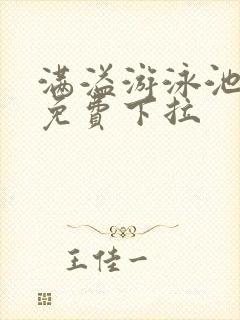 满溢游泳池
免费下拉
王佳一